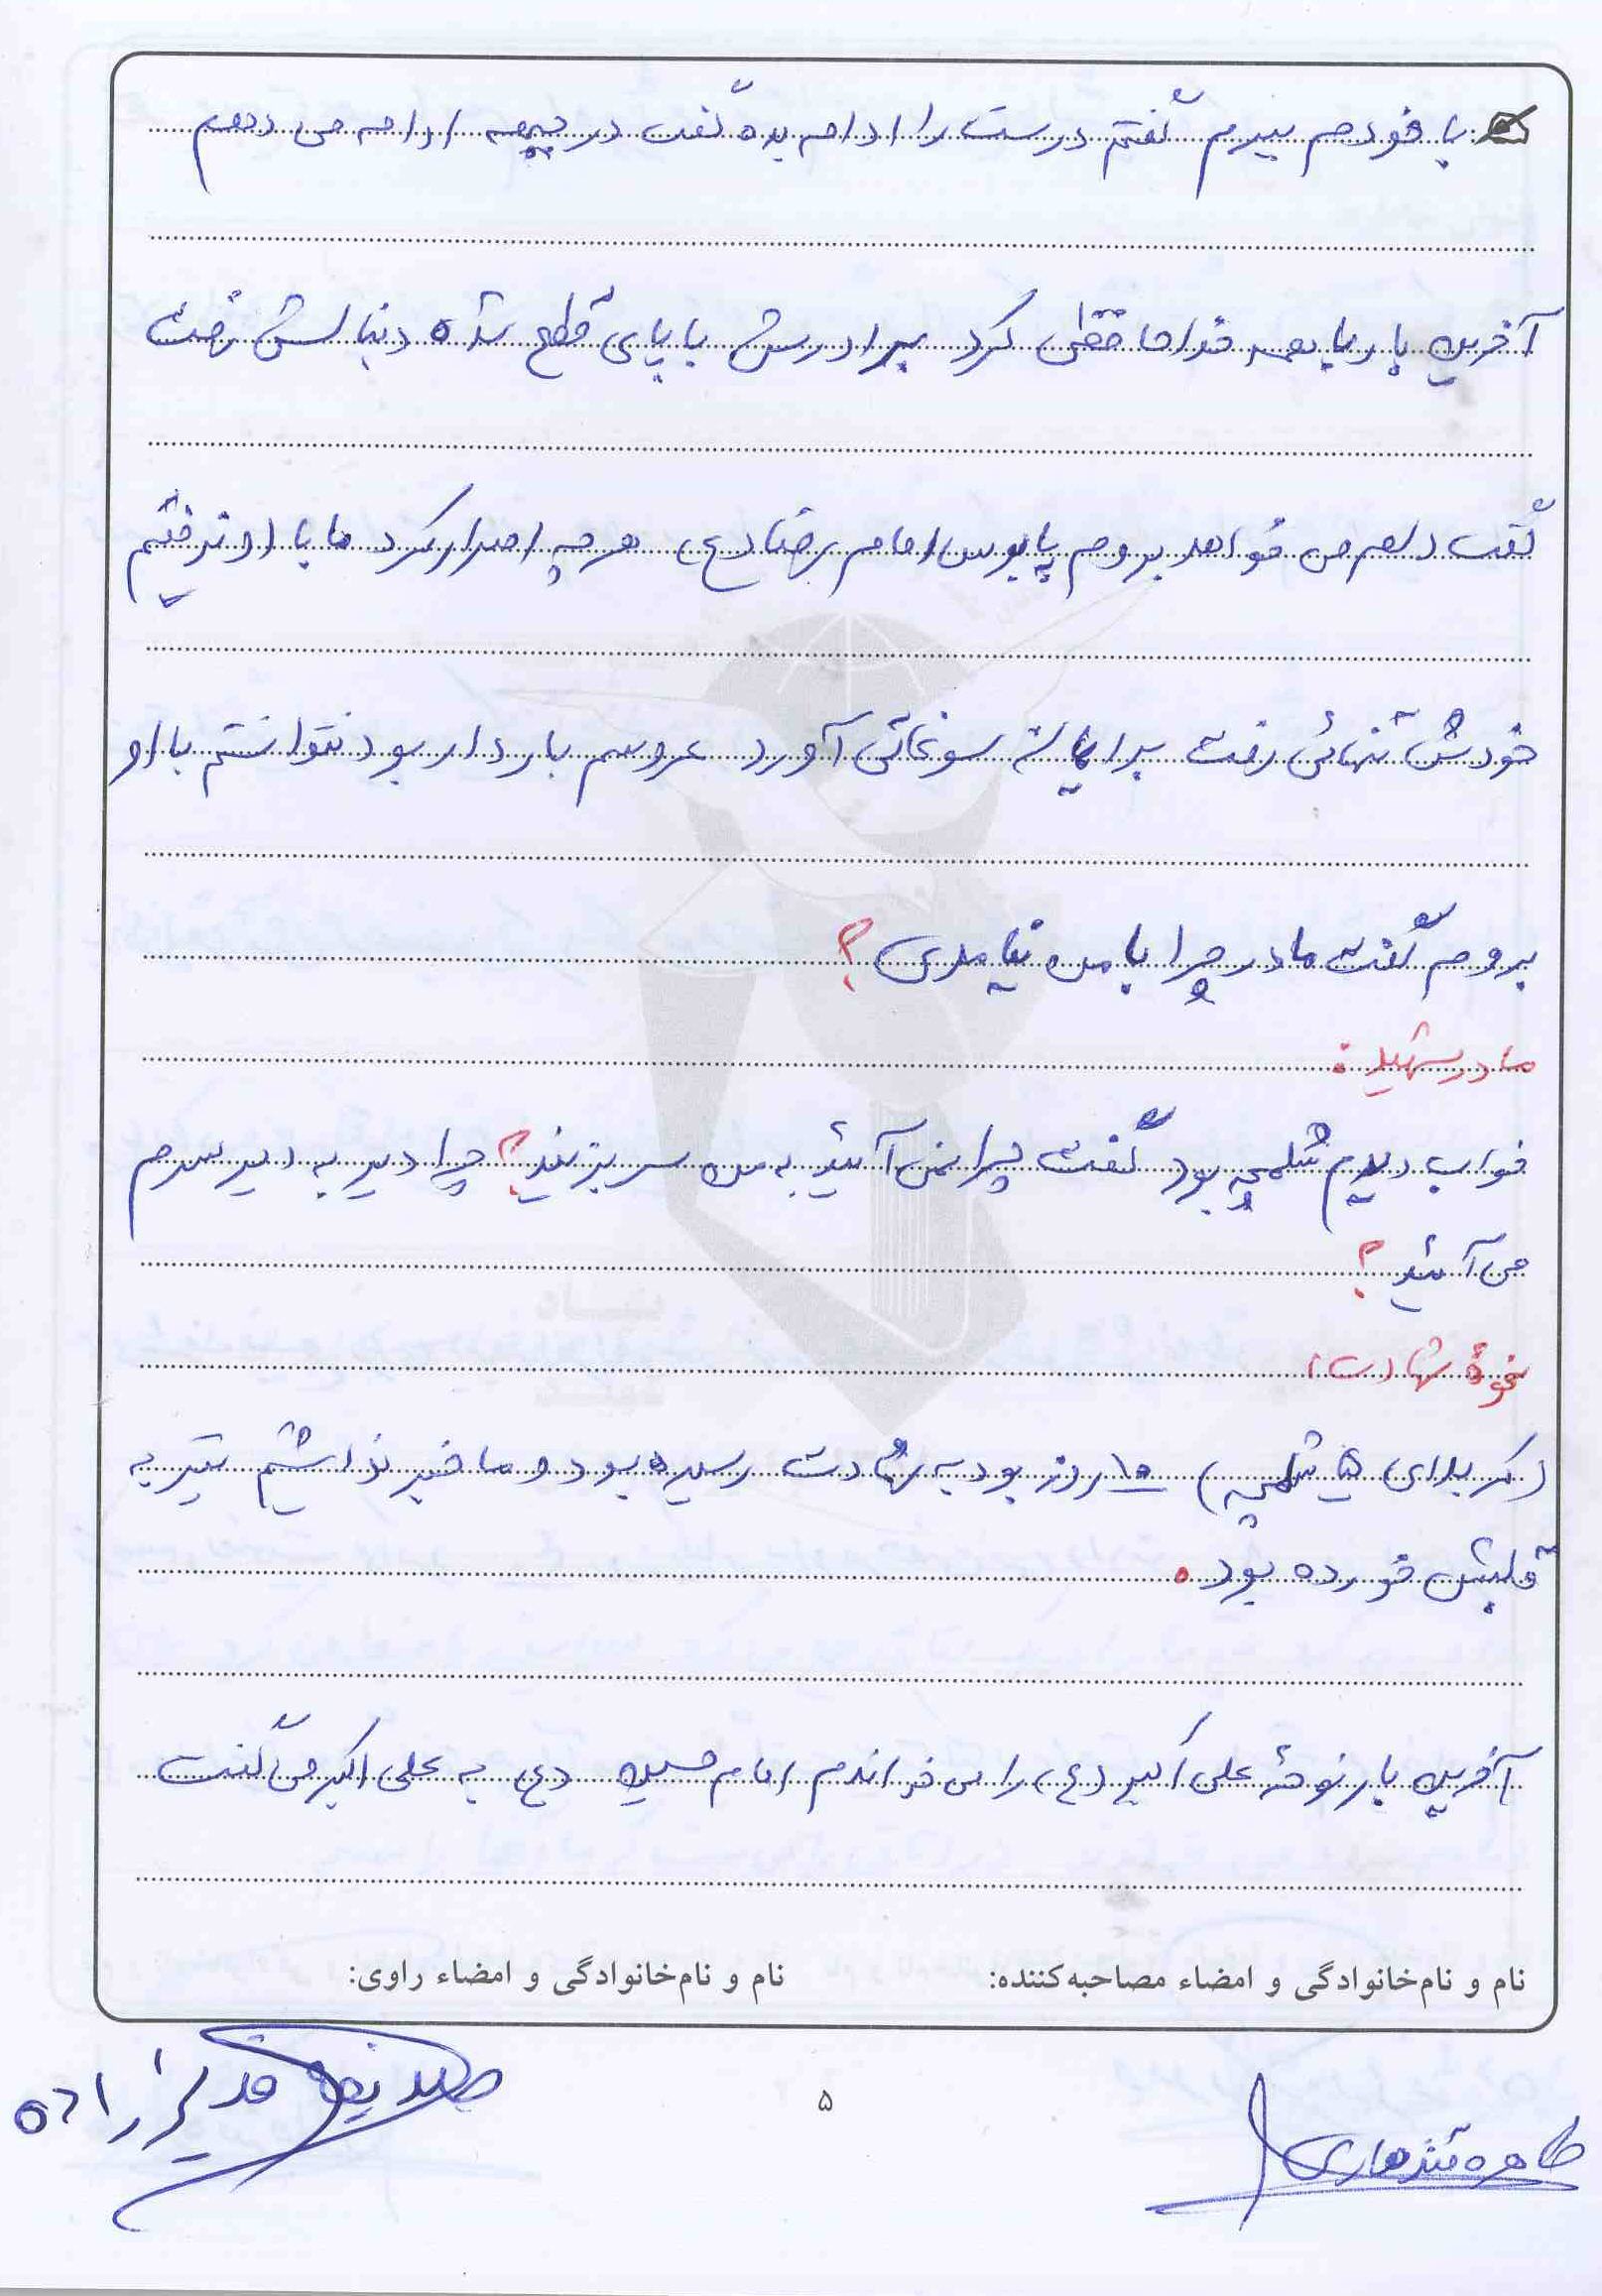 با خودم ببرم گفتم درست را ادامه بده گفت در جبهه ادامه می دهم
آخرین بار با بعد خداحافظی کرد برادرش با پای قطع شده دنبالش رفت
گفت دلم می خواهد بروم پابوس امام رضا (ع) هرچه اصرار کرد ما با او نرفتیم
خودش تنهائی رفت برایمان سوغاتی آورد عروسم باردار بود نتوانستم با او
بروم گفت مادر چرا با من نیامدی؟
مادر شهید:
خواب دیدم شلمچه بود گفت چرا نمی آئید به من سر بزنید؟ چرا دیر به دیر سرم
می آئید؟
نحوهٔ شهادت:
(کربلای ۵ شلمچه) ۱۵ روز بود به شهادت رسیده بود و ما خبر نداشتیم تیر به
قلبش خورده بود.
آخرین بار نوحهٔ علی اکبر (ع) را می خواندم امام حسین (ع) به علی اکبر می گفت
نام و نام‌خانوادگی و امضاء مصاحبه‌کننده: نام و نام‌خانوادگی و امضاء راوی:
طاهره قندهاری
۵